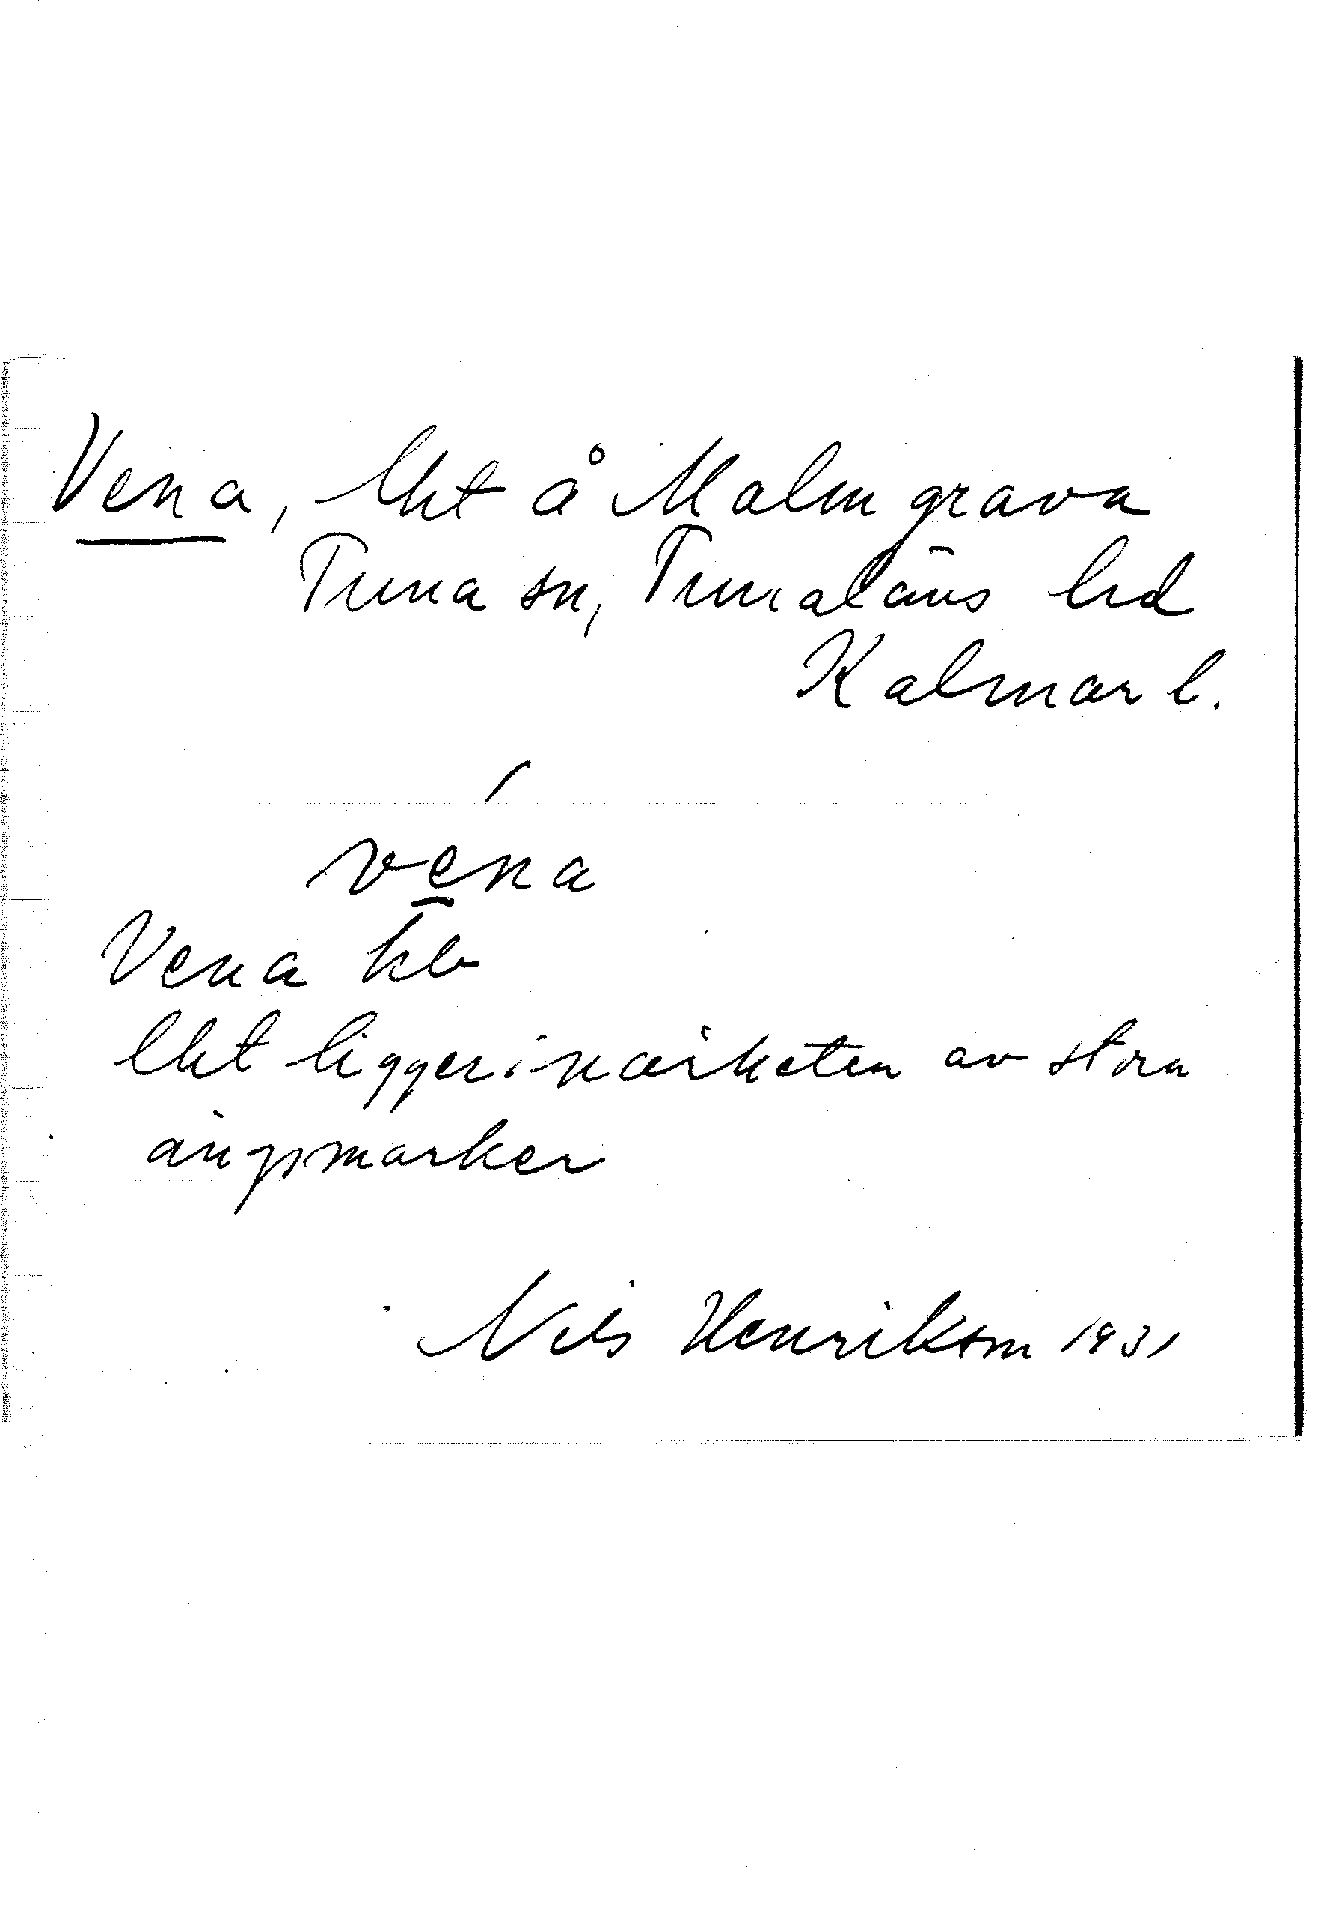 Vena, lht å Malmgrava
Tuna sn, Tunaläns hd
Kalmar l.
véna
Vena
lht ligger i närheten av stora
ängsmarker
Nils Henrikson 1931